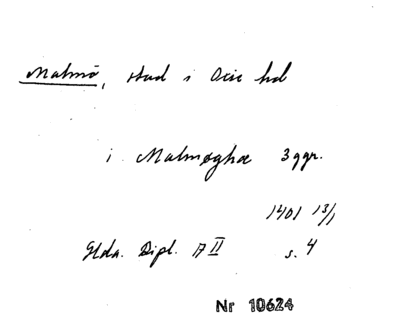 Malmö, stad i Oxie hd
i Malmøghæ 3 ggr.
1401 13/1
Glda. Dipl. A II s. 4
Nr 10624